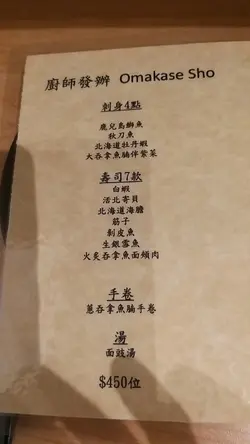 廚師發辦 Omakase Sho
刺身4點
鹿兒島鰤魚
秋刀魚
北海道牡丹蝦
大吞拿魚腩伴紫菜
壽司7款
白蝦
活北寄貝
北海道海膽
筋子
剝皮魚
生銀雪魚
火炙吞拿魚面頰肉
手卷
蔥吞拿魚腩手卷
湯
面豉湯
$450位